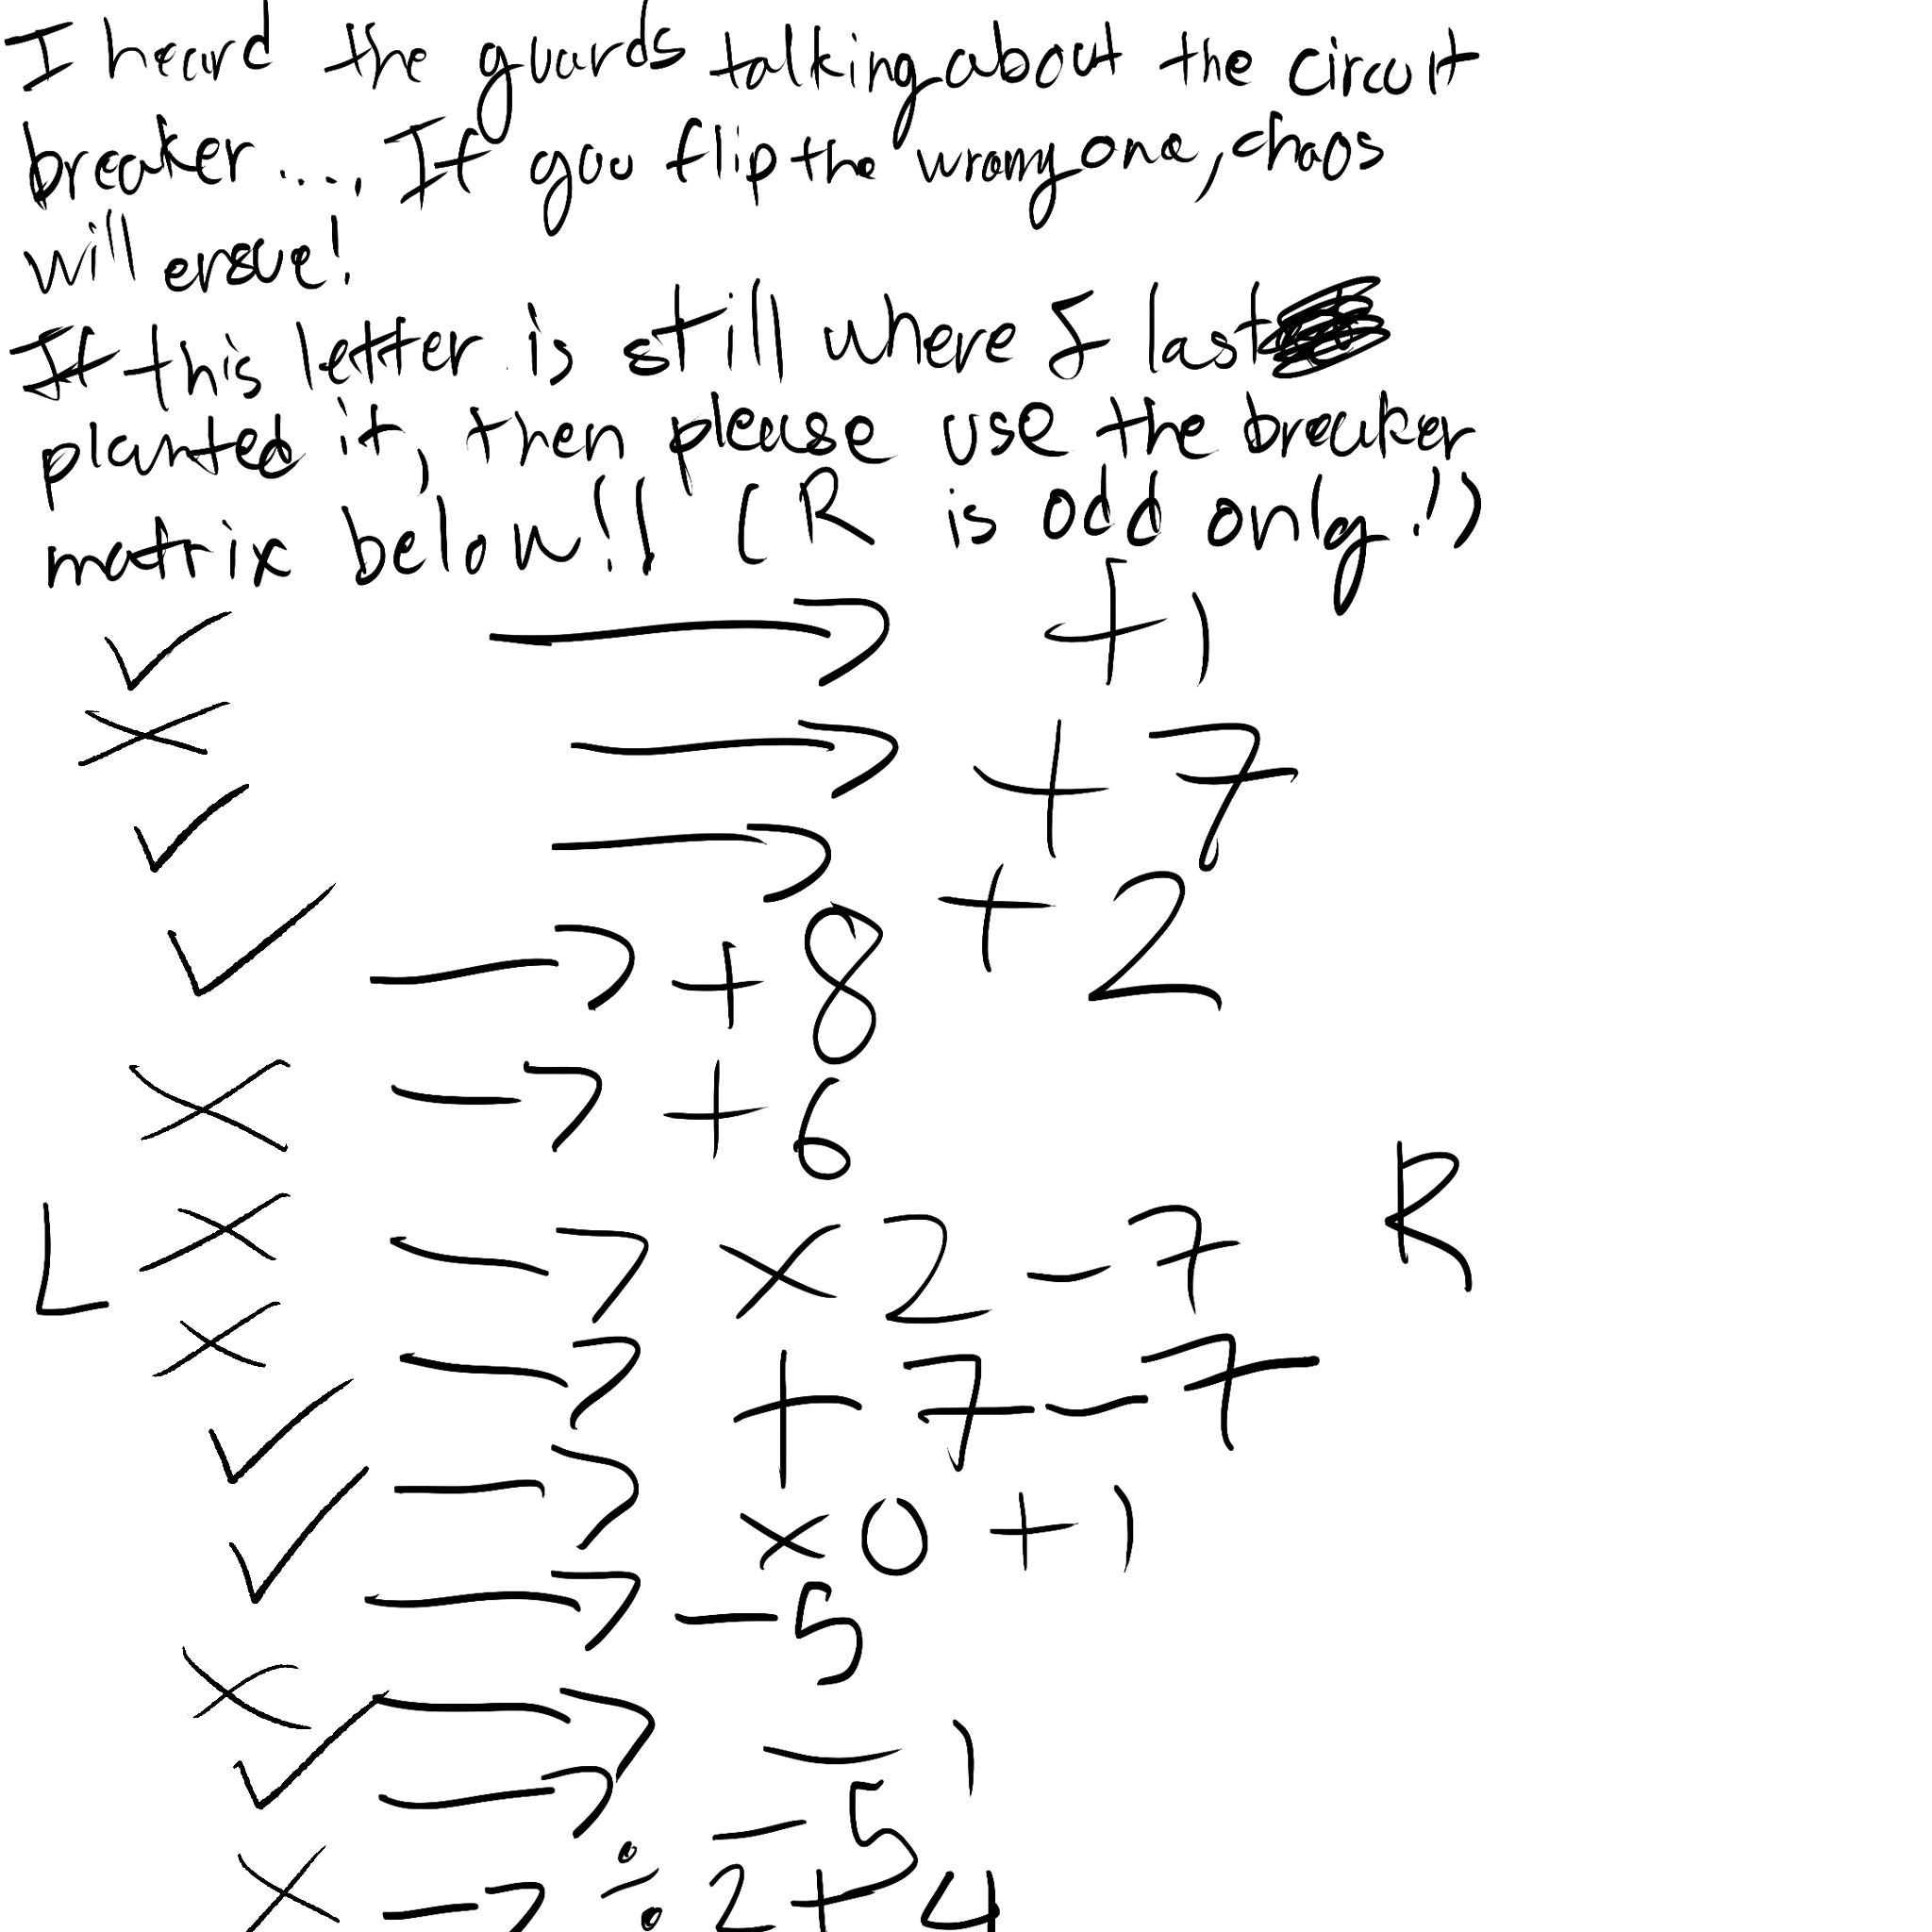 I heard the guards talking about the circuit
breaker...., If you flip the wrong one, chaos
will ensue!
If this letter is still where I last
planted it, then please use the breaker
matrix below!! (R is odd only!)
✓ → +1
✗ → +7
✓ → +2
✓ → +8
✗ → +6
L ✗ → ×2-7 R
✗ → +7-7
✓ → ×0+1
✓ → -5
✗ → -1
✓ → -5
✗ → ÷2+4